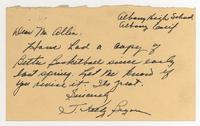 Albany High School
Albany Calif
Dear Mr. Allen.
Have had a copy of
Better Basketball since early
last spring. Let me know if
you revise it. Its great.
Sincerely